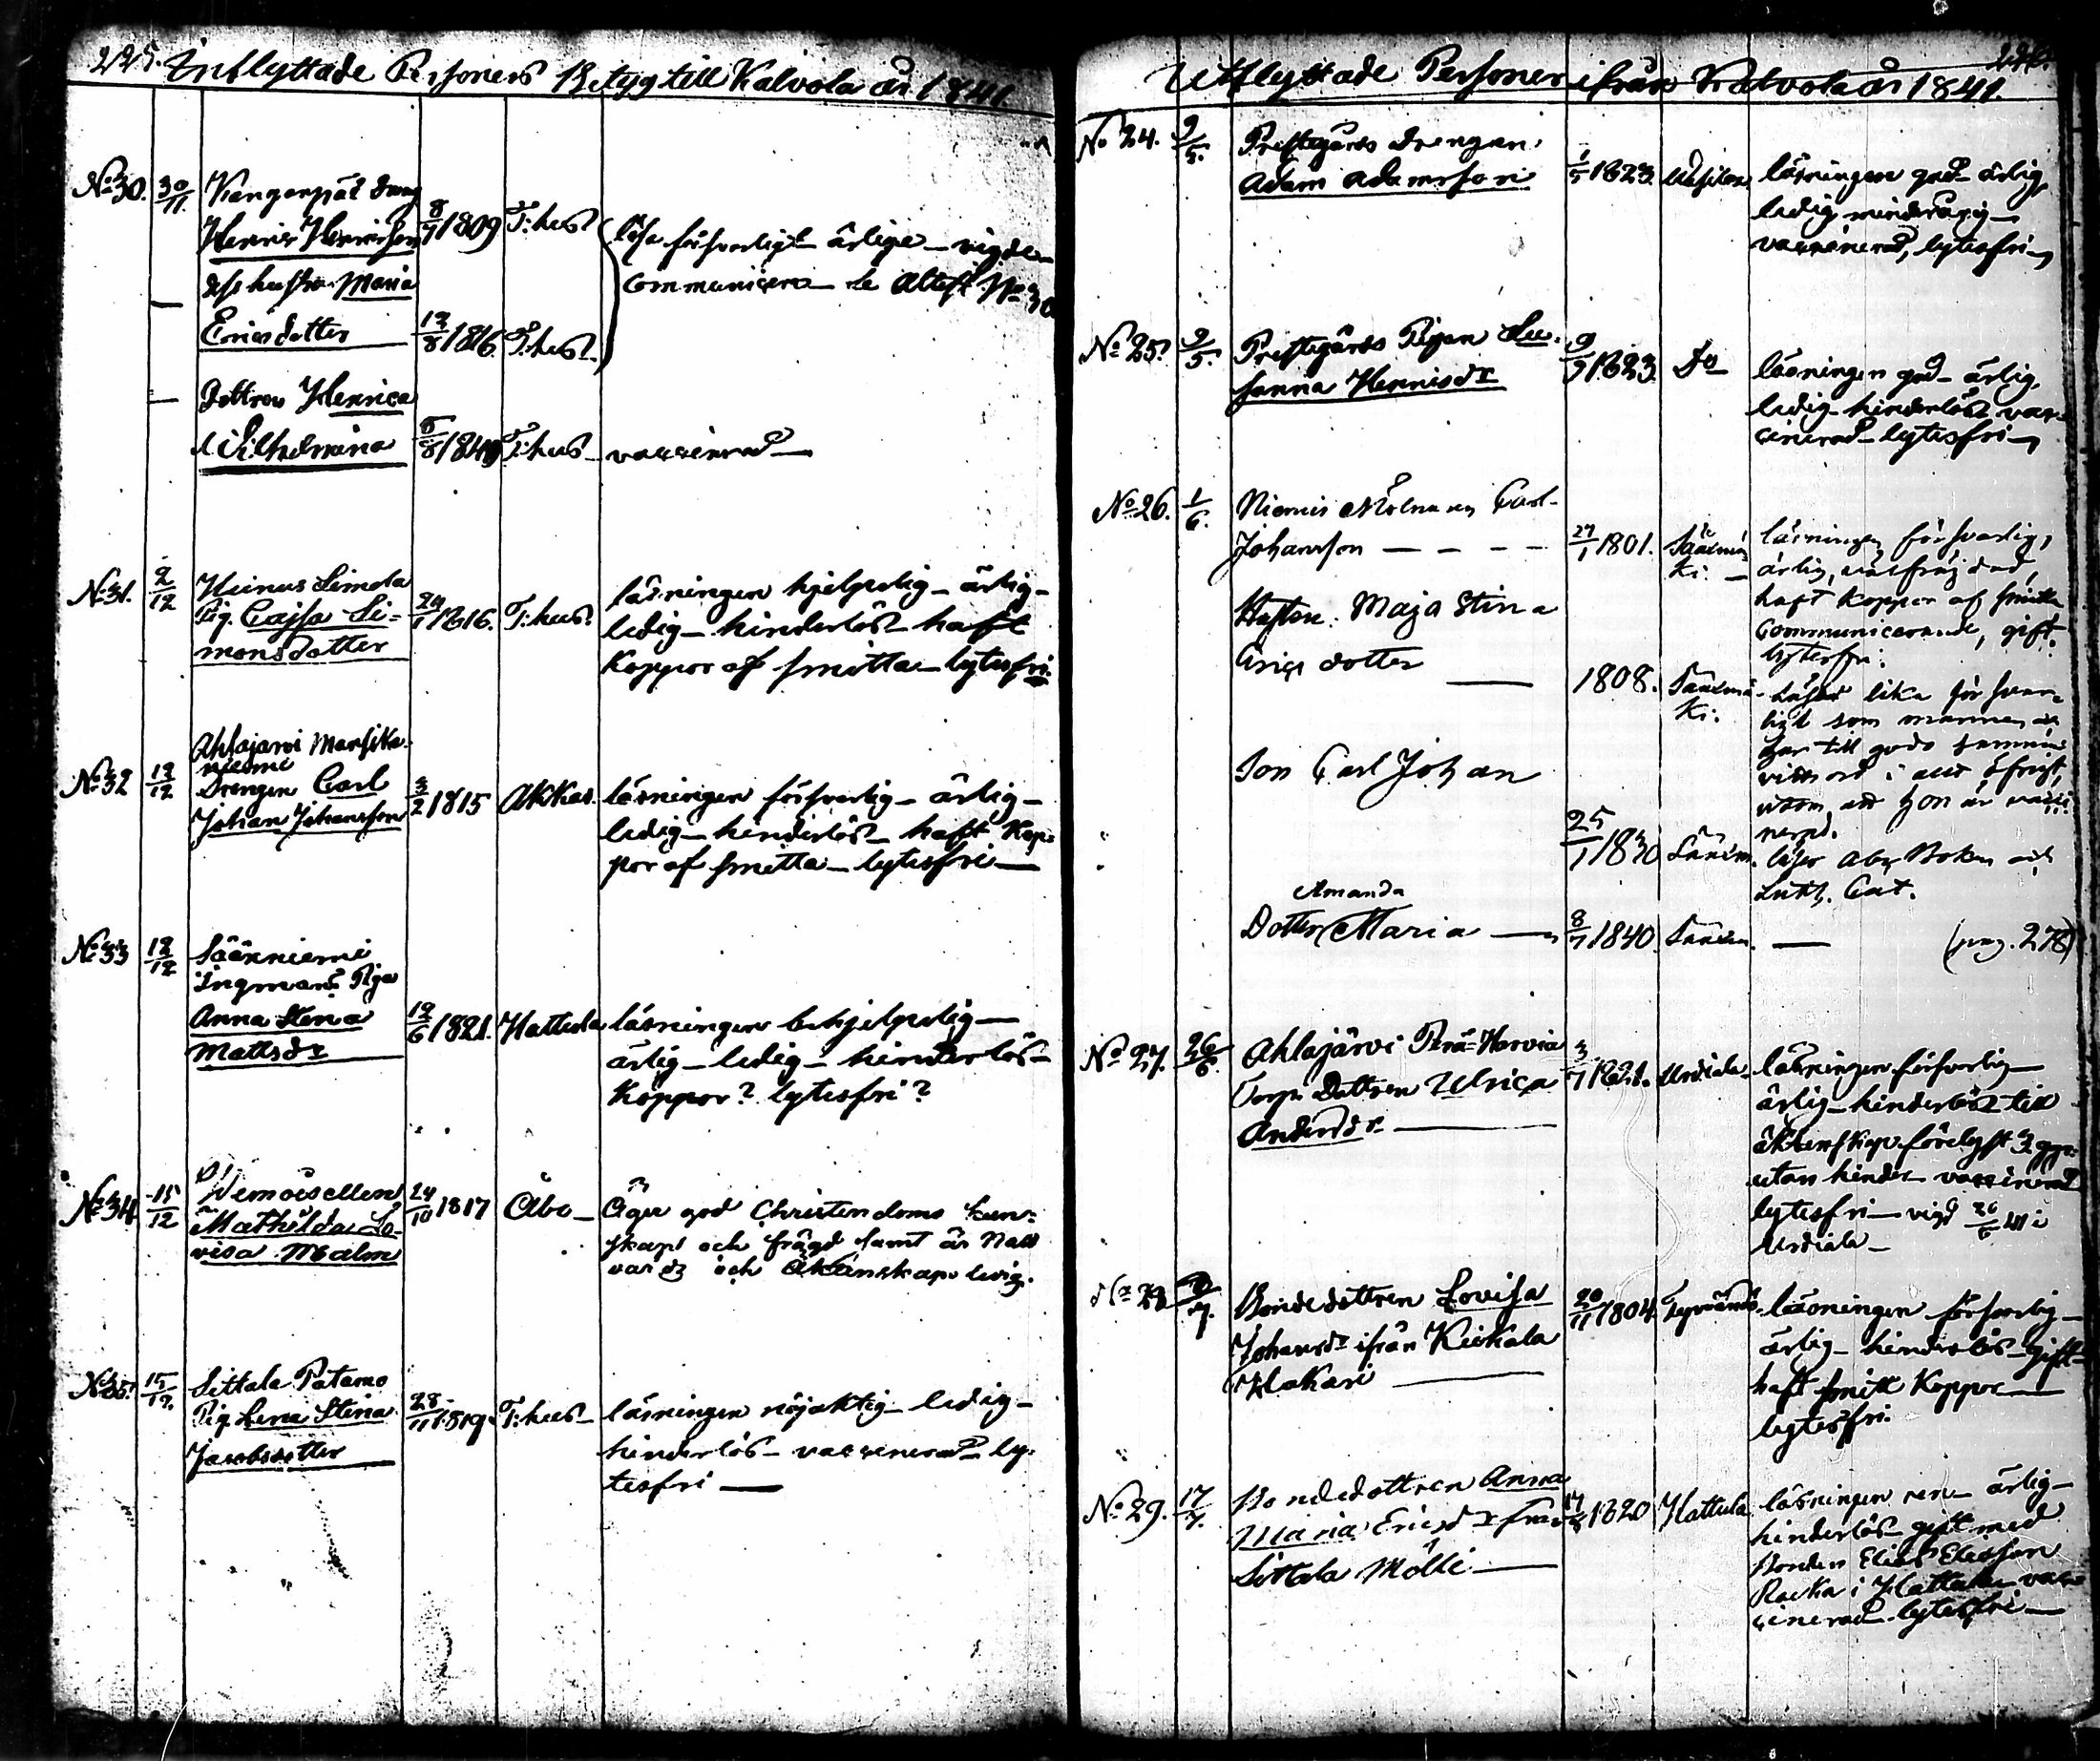 225. Inflyttade Personers Betyg till Kalvola år 1841
No 30. 30/11 Kanganpää dreng
Henric Henricsson 8/7 1809 T:hus
läsa försvarligt ärlige vigde
communicera se Attest No 30
dess hustru Maria
Ericsdotter 12/8 1816. T:hus.
Dottren Henrica
Wilhelmina 5/8 1840 T:hus vaccinerad
No 31. 2/12 Heinus Simola
Pig. Cajsa Si-
monsdotter 1816. T:hus.
läsningen hjelpelig ärlig
ledig hinderlös haft
Koppor af smitta lytesfri.
No 32 12/12 Ahlajarvi
Drengen Carl
Johan Johansson 3/2 1815 Akkas.
läsningen försvarlig ärlig
ledig hinderlös haft Kop-
por af smitta lytesfri
No 33 12/12 Sääxniemi
Ingmans Piga
Anna Stina
Mattsdr 12/6 1821. Hattula
läsningen behjelpelig
ärlig ledig hinderlös
Koppor? lytesfri?
No 34. 15/12 Demoisellen
Mathilda Lo-
visa Malm 24/10 1817 Åbo
Äger god Christendoms kun-
skap och frägd samt är Natt
vards och Äktenskaps ledig.
No 35. 15/12. Sittala Patamo
Pig. Lena Stina
Jacobsdotter 28/11 1819. T:hus
läsningen nöjaktig ledig
hinderlös vaccinerad ly-
tesfri
Utflyttade Personer ifrån Kalvola år 1841.
No 24. 9/5. Prestgårds Drengen
Adam Adamsson 1/5 1823.
läsningen god ärlig
ledig minderårig
vaccinerad, lytesfri
No 25. 9/5. Prestgårds Pigan Su-
sanna Henricsdr 1823. Do
läsningen god ärlig
ledig hinderlös vac-
cinerad lytesfri
No 26. 1/6. Niemis Carl
Johansson 27/1 1801. Sääxmä-
ki.
läsningen försvarlig,
ärlig, välfrägdad,
haft koppor af smitta
Communicerande, gift.
lytesfri.
Hustru: Maja Stina
Erics dotter 1808. Sääxmä-
ki.
Läser lika försvar-
ligt som mannen
har till godo samma
vittsord i allt öfrigt,
utom att hon är vacci-
nerad.
Son Carl Johan
25/1 1830 Sääxm. läser Abc Boken och
Luth. Cat.
Amanda
Dotter Maria 8/7 1840 Sääxm. (pag. 278)
No 27. 26/6 Ahlajärvi Perä-Harvia
Torp. Dottren Ulrica
Andersdr 3/7 1821. Urdiala
läsningen försvarlig
ärlig hinderlös till
äktenskap förelyst 3 ggr
utan hinder vaccinerad
lytesfri vigd 26/6 41 i
Urdiala
No 28 7. Bondedottren Lovisa
Johansdr ifrån Keikala
Hakari 20/11 1804. Tyrvändö
läsningen försvarlig
ärlig hinderlös Gift
haft smitt Koppor
lytesfri.
No 29. 17/7. Bondedottren Anna
Maria Ericsdr från
Sittala Mölli 1820 Hattula
läsningen ren ärlig
hinderlös gift med
Bonden Elias Eliesson
i Hattula vac-
cinerad lytesfri